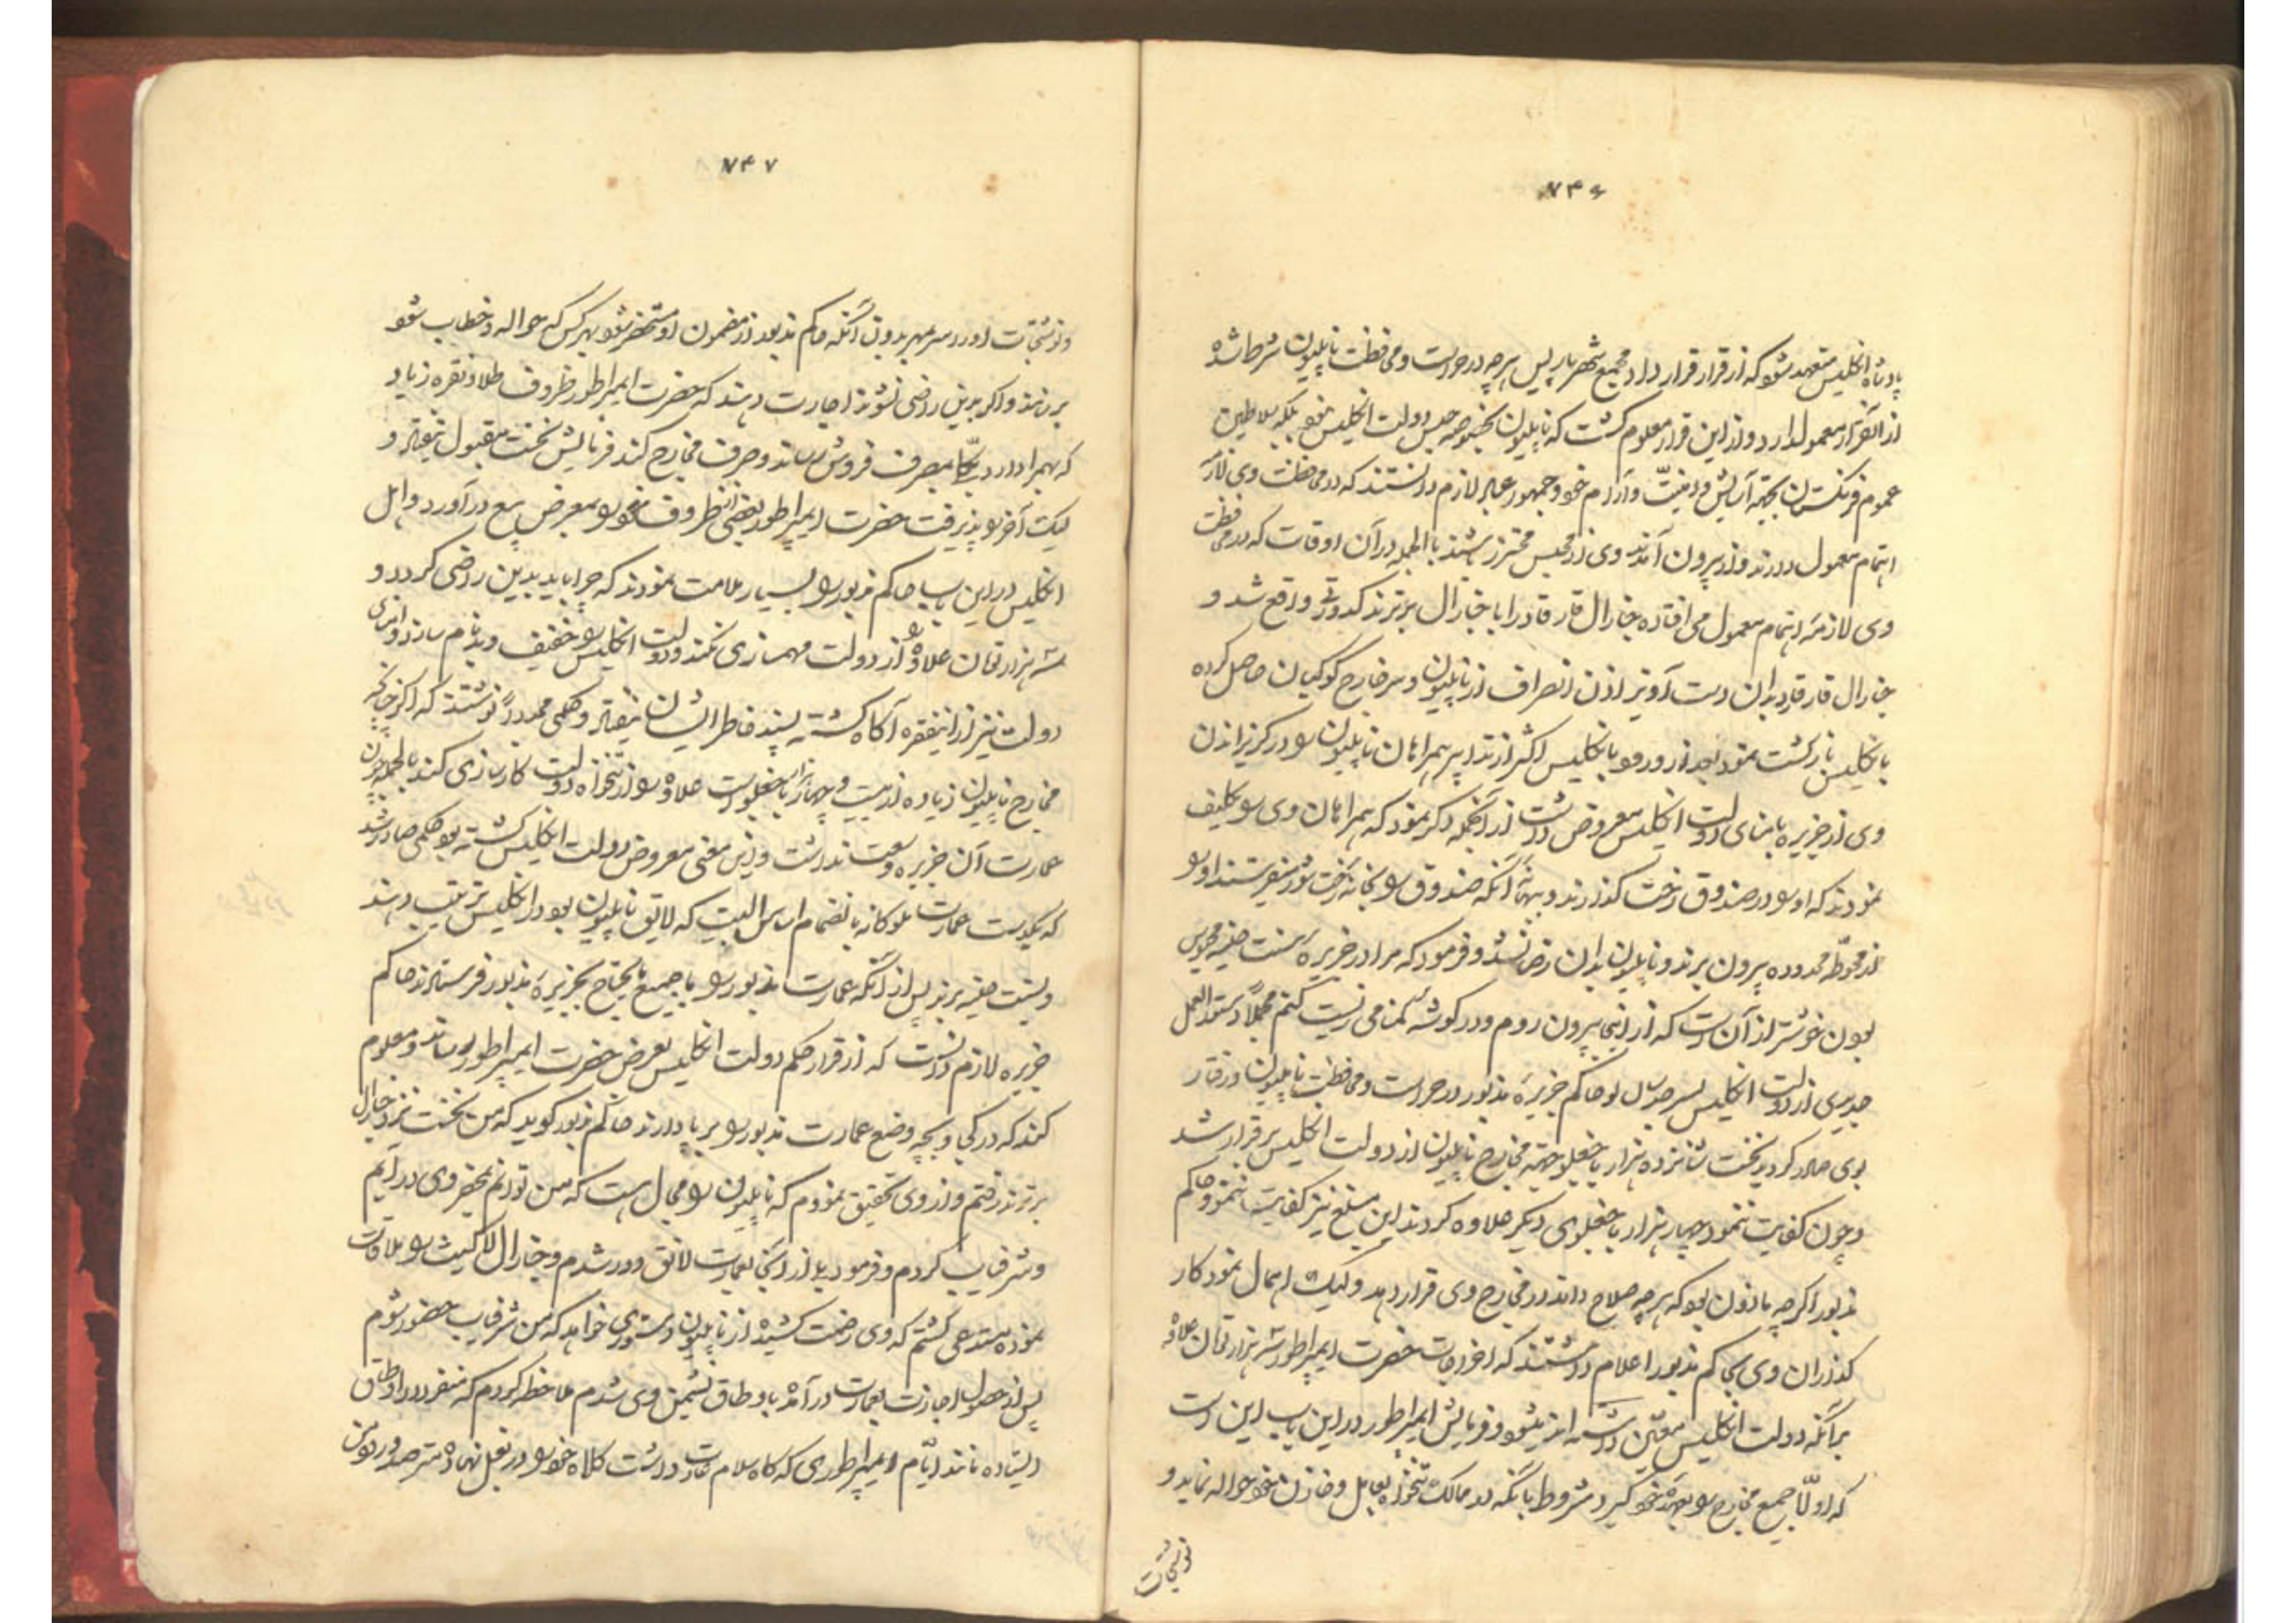 ۷۴۶
پادشاه انگلیس متعهد شود که از قرار قرارداد مجمع شهر پاریس هرچه در حراست و محافظت ناپلیون شرط شده
از آنقرار معمول دارد و از این قرار معلوم گشت که ناپلیون بخصوصه حبس دولت انگلیس نبود بلکه سلاطین
عموم فرنگستان بجهة آسایش و امنیت و آرام خود و جمهور عباد لازم دانستند که در محافظت وی لازمه
اهتمام معمول دارند و از بیرون آمدن وی از محبس محترز باشند بالجمله در آن اوقات که در محافظت
وی لازمه اهتمام معمول می افتاد جنارال قارقاد را با جنارال برترند کدورتی واقع شد و
جنارال قارقاد بدان دست آویز اذن انصراف از ناپلیون و سرخارج گوکبان حاصل کرده
بانگلیس بازگشت نمود بعد از ورود بانگلیس اکثر از تدابیر همراهان ناپلیون را در گریزاندن
وی از جزیره بامنای دولت انگلیس معروض داشت از آنجمله ذکر نمود که همراهان وی را تکلیف
نمودند که او را در صندوق رخت گذارند و ببهانه آنکه صندوق را بخانه رخت شور میفرستند او را
از محوطه محدوده بیرون برند و ناپلیون بدان راضی نشد و فرمود که مرا در جزیره سنت هلینه محبوس
بودن خوشتر از آن است که از اینجا بیرون روم و در گوشه گمنامی زیست کنم مجملا دستورالعمل
جدیدی از دولت انگلیس بسر هدسن لو حاکم جزیره مذبور در حراست و محافظت ناپلیون و رفتار
بوی صادر گردید نخست شانزده هزار باجغلو بجهة مخارج ناپلیون از دولت انگلیس برقرار شد
و چون کفایت ننمود چهار هزار باجغلوی دیگر علاوه کردند این مبلغ نیز کفایت ننمود و حاکم
مذبور اگرچه ماذون بود که هرچه صلاح داند در مخارج وی قرار دهد ولیک اهمال نمود کار
گذاران وی بحاکم مذبور اعلام داشتند که اخراجات حضرت ایمپراطور شش هزار تومان علاوه
برآنکه دولت انگلیس معین داشته اند میشود و فرمایش ایمپراطور در این باب این است
که اولا جمیع مخارج را بعهده خود گیرد مشروط بانکه در ممالک تنخواه بعامل و خازن خود حواله نماید و
نوشتجات
۷۴۷
و نوشتجات او را سر بمهر بدون آنکه حاکم مذبور از مضمون او مستحضر شود بهر کس که حواله و خطاب شود
برسانند و اگر بدین راضی نشوند اجازت دهند که حضرت ایمپراطور ظروف طلا و نقره زیاد
که بهمراه دارد یکجا بمصرف فروش رساند و صرف مخارج کند فرمایش نخست مقبول نیفتاد و
لیک آخر را پذیرفت حضرت ایمپراطور بعضی از ظروف خود را بمعرض بیع درآورد و اهل
انگلیس در این باب حاکم مذبور را بسیار ملامت نمودند که چرا باید بدین راضی گردد و
شش هزار تومان علاوه را از دولت مهمسازی نکند و دولت انگلیس را خفیف و بدنام سازد و امنای
دولت نیز از اینفقره آگاه گشته پسند خاطر ایشان نیفتاد و حکمی مجددا نوشتند که اگر چنانچه
مخارج ناپلیون زیاده از بیست و چهار هزار باجغلو است علاوه را از تنخواه دولت کارسازی کند بالجمله چون
عمارت آن جزیره وسعت نداشت و این معنی معروض دولت انگلیس گشته بود حکمی صادر شد
که یکدست عمارت ملوکانه بانضمام اساس البیت که لایق ناپلیون بود در انگلیس ترتیب دهند
و بسنت هلینه برند پس از آنکه عمارت مذبور را با جمیع مایحتاج بجزیره مذبور فرستادند حاکم
جزیره لازم دانست که از قرار حکم دولت انگلیس بعرض حضرت ایمپراطور رساند و معلوم
کند که در کجا و بچه وضع عمارت مذبور را برپا دارند حاکم مذبور گوید که من نخست نزد جنارال
برترند رفتم و از وی تحقیق نمودم که ناپلیون را مجال هست که من توانم بمحضر وی درآیم
و شرفیاب گردم و فرمود بلا از آنجا بعمارت لانق وود شدم و جنارال لاکیث را ملاقات
نموده مستدعی گشتم که وی زحمت کشیده از ناپلیون دستوری خواهد که من شرفیاب حضور شوم
پس از حصول اجازت بعمارت درآمده باوطاق نشیمن وی شدم ملاحظه کردم که منفردا در اوطاق
ایستاده مانند ایام ایمپراطوری که گاه سلام عادت داشت کلاه خود را در بغل نهاده مترصد ورود من